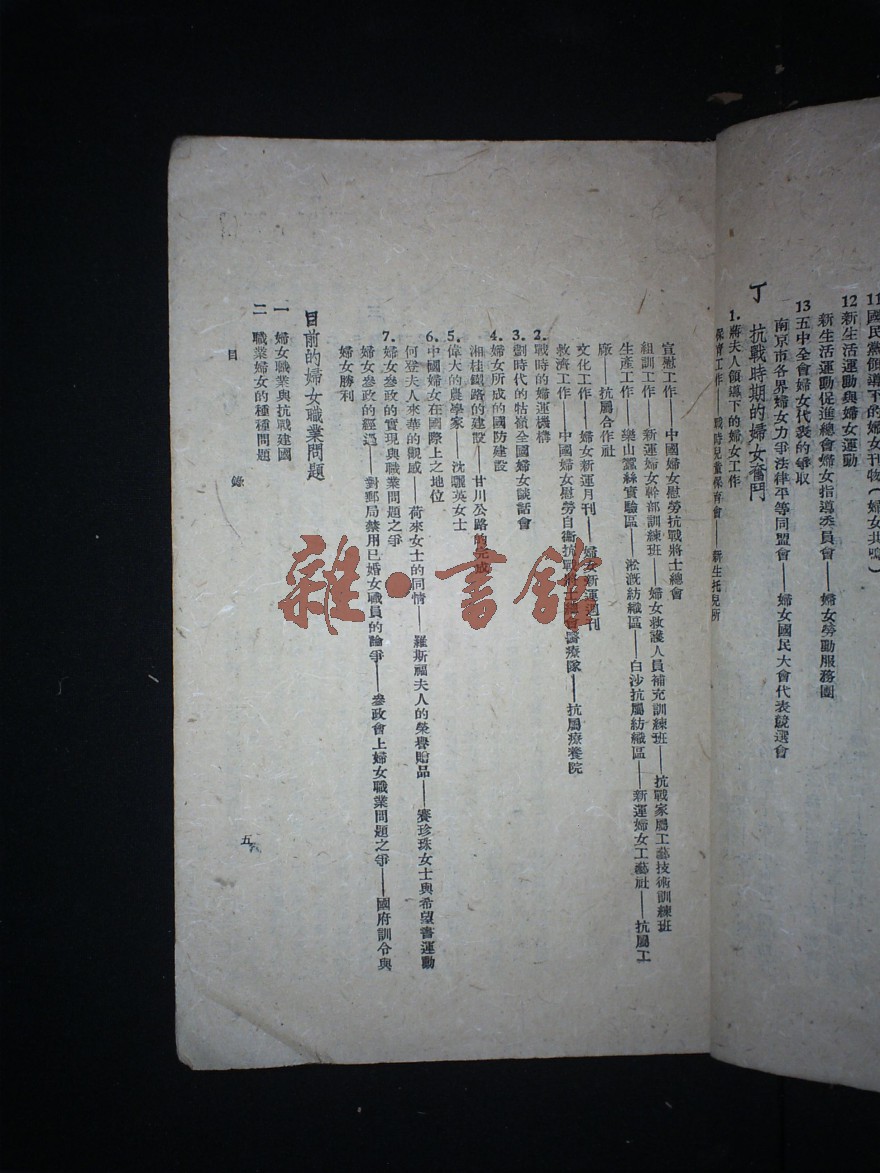 11國民黨領導下的婦女刊物(婦女共鳴)
12新生活運動與婦女運動
新生活運動促進總會婦女指導委員會——婦女勞動服務團
13五中全會婦女代表的爭取
南京市各界婦女力爭法律平等同盟會——婦女國民大會代表競選會
丁 抗戰時期的婦女奮鬥
1.蔣夫人領導下的婦女工作
保育工作——戰時兒童保育會——新生托兒所
宣慰工作——中國婦女慰勞抗戰將士總會
組訓工作——新運婦女幹部訓練班——婦女救護人員補充訓練班——抗戰家屬工藝技術訓練班
生產工作——樂山蠶絲實驗區——淞溉紡織區——白沙抗屬紡織區——新運婦女工藝社——抗屬工
廠——抗屬合作社
文化工作——婦女新運月刊——婦女新運週刊
救濟工作——中國婦女慰勞自衛抗戰將士總會醫療隊——抗屬療養院
2.戰時的婦運機構
3.劃時代的牯嶺全國婦女談話會
4.婦女所成的國防建設
湘桂鐵路的建設——甘川公路的完成
5.偉大的農學家——沈驪英女士
6.中國婦女在國際上之地位
何登夫人來華的觀感——荷來女士的同情——羅斯福夫人的榮譽贈品——賽珍珠女士與希望書運動
7.婦女參政的實現與職業問題之爭
婦女參政的經過——對郵局禁用已婚女職員的論爭——參政會上婦女職業問題之爭——國府訓令與
婦女勝利
目前的婦女職業問題
一 婦女職業與抗戰建國
二 職業婦女的種種問題
目錄
五
雜·書館